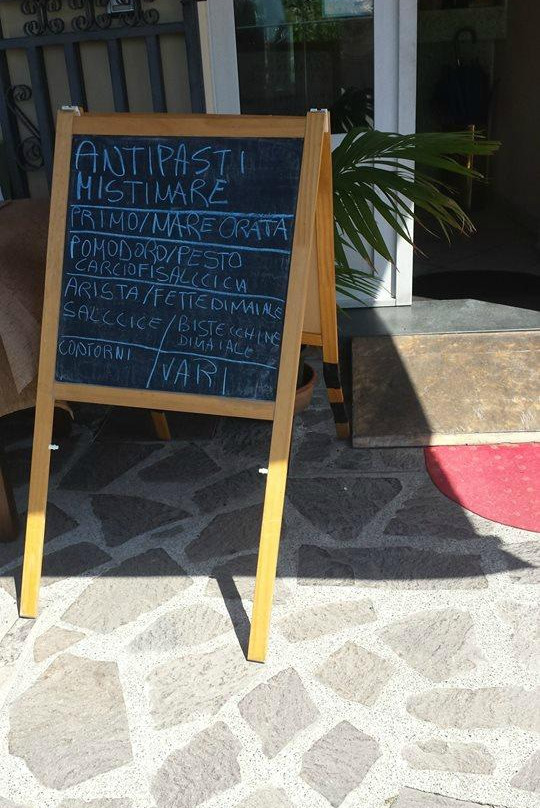 ANTIPASTI
MISTIMARE
PRIMO/MARE ORATA
POMODORO/PESTO
CARCIOFISALCCICIA
ARISTA/FETTEDIMAIALE
SALCCICE/BISTECCHINE
DIMAIALE
CONTORNI/VARI